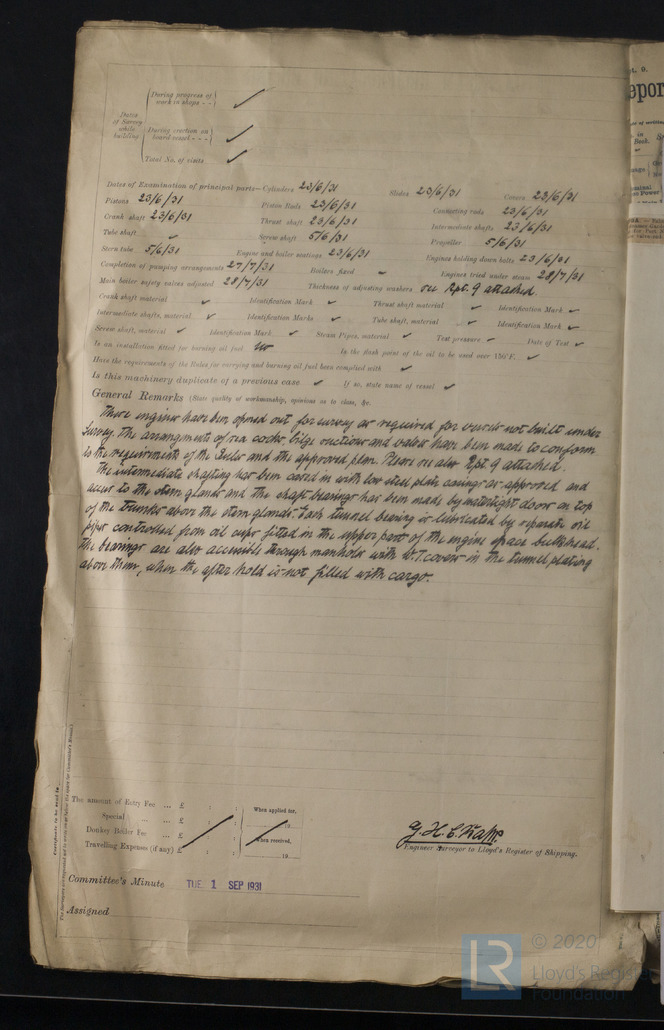 During progress of work in shops - - ✓
Dates of Survey while building
During erection on board vessel - - - ✓
Total No. of visits ✓
Dates of Examination of principal parts— Cylinders 23/6/31 Slides 23/6/31 Covers 23/6/31
Pistons 23/6/31 Piston Rods 23/6/31 Connecting rods 23/6/31
Crank shaft 23/6/31 Thrust shaft 23/6/31 Intermediate shafts 23/6/31
Tube shaft ✓ Screw shaft 5/6/31 Propeller 5/6/31
Stern tube 5/6/31 Engine and boiler seatings 23/6/31 Engines holding down bolts 23/6/31
Completion of pumping arrangements 27/7/31 Boilers fixed ✓ Engines tried under steam 28/7/31
Main boiler safety valves adjusted 28/7/31 Thickness of adjusting washers see Rpt. 9 attached.
Crank shaft material ✓ Identification Mark ✓ Thrust shaft material ✓ Identification Mark ✓
Intermediate shafts, material ✓ Identification Marks ✓ Tube shaft, material ✓ Identification Mark ✓
Screw shaft, material ✓ Identification Mark ✓ Steam Pipes, material ✓ Test pressure ✓ Date of Test ✓
Is an installation fitted for burning oil fuel No Is the flash point of the oil to be used over 150°F. ✓
Have the requirements of the Rules for carrying and burning oil fuel been complied with ✓
Is this machinery duplicate of a previous case ✓ If so, state name of vessel ✓
General Remarks (State quality of workmanship, opinions as to class, &c.
These engines have been opened out for survey as required for vessels not built under
Survey, the arrangements of sea cocks, bilge suctions and valves have been made to conform
to the requirements of the Rules and the approved plan. Please see also Rpt. 9 attached.
The intermediate shafting has been cased in with low steel plate casings as approved and
access to the stern glands and the shaft bearings has been made by watertight doors on top
of the trunks above the stern glands. Each tunnel bearing is lubricated by separate oil
pipes controlled from oil cups fitted in the upper part of the engine space bulkhead.
The bearings are also accessible through manholes with W.T. covers in the tunnel plating
above them, when the after hold is not filled with cargo.
Certificate to be sent to
The amount of Entry Fee ... £ : : When applied for,
Special ... ... £ : : 19
Donkey Boiler Fee ... £ : : When received,
Travelling Expenses (if any) £ : : 19
Engineer Surveyor to Lloyd's Register of Shipping.
Committee's Minute TUE 1 SEP 1931
Assigned
LR © 2020
Lloyd's Register
Foundation